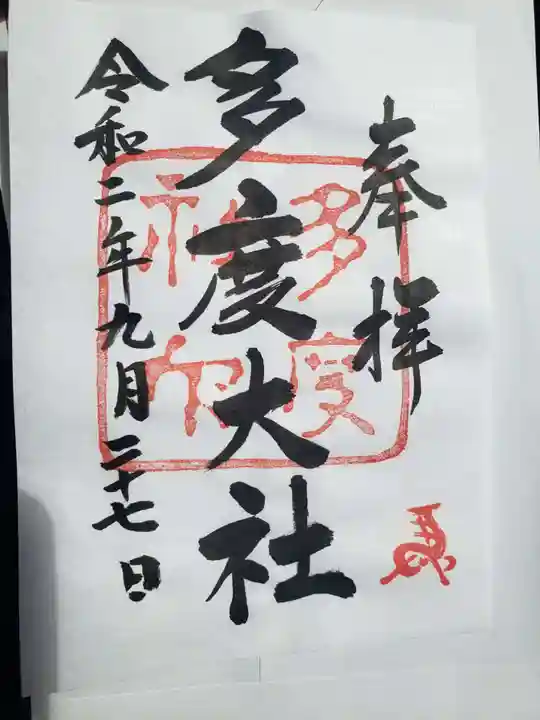 奉拝
多度大社
令和二年九月二十七日
多度
神印